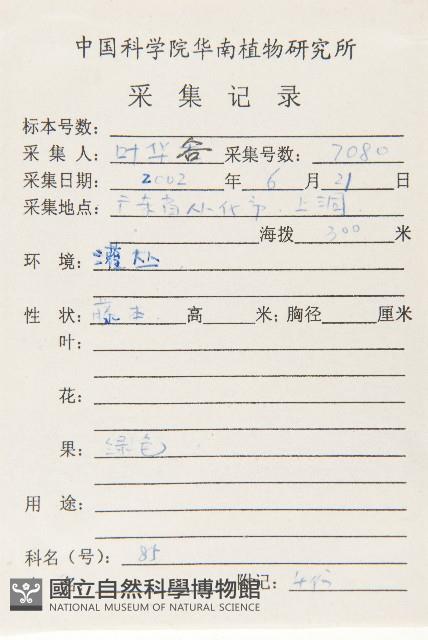 中国科学院华南植物研究所
采集记录
标本号数:
采集人: 叶华谷 采集号数: 7080
采集日期: 2002 年 6 月 21 日
采集地点: 广东省从化市, 上洞
海拨 300 米
环境: 灌丛
性状: 藤本 高 米; 胸径 厘米
叶:
花:
果: 绿色
用途:
科名(号): 85
附记: 4份
國立自然科學博物館
NATIONAL MUSEUM OF NATURAL SCIENCE